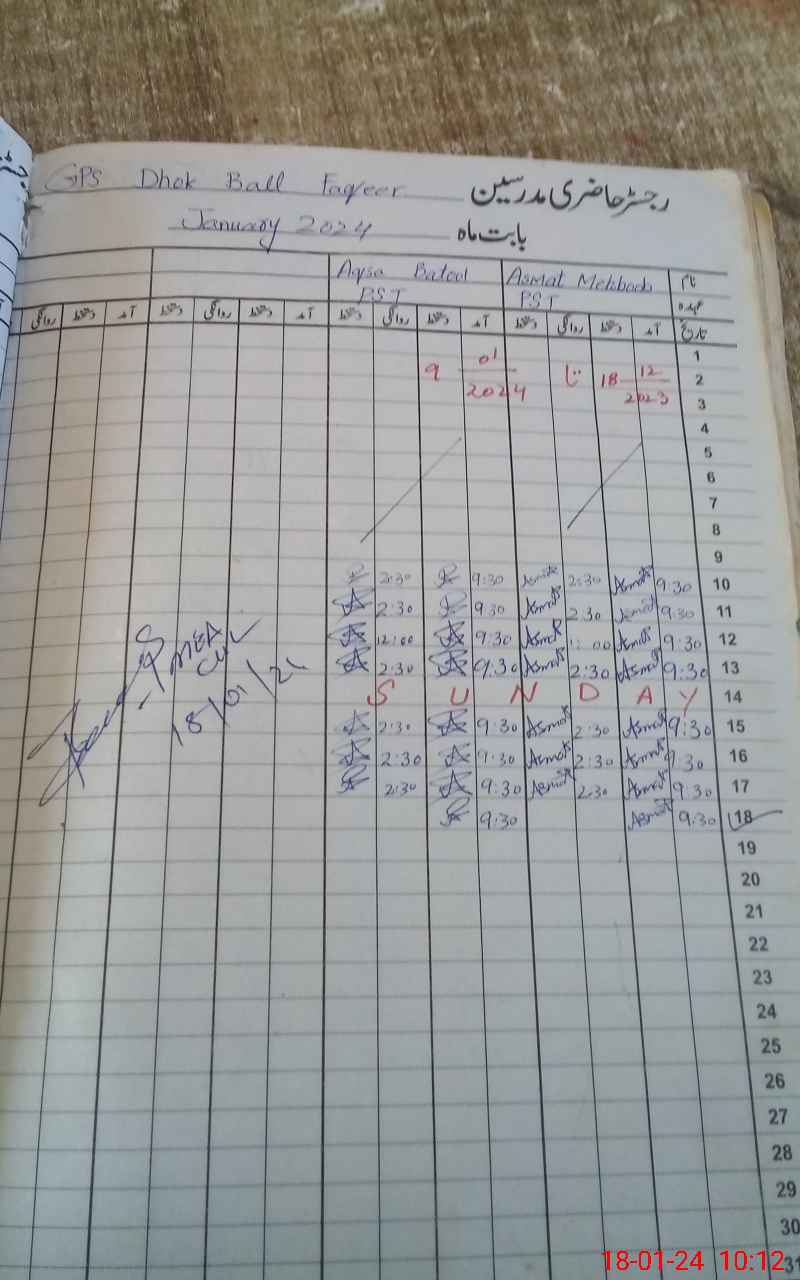 GPS Dhok Ball Faqeer رجسٹر حاضری مدرسین
January 2024 بابت ماہ
Aqsa Batool Asmat Mehboob نام
PST PST عہدہ
روانگی دستخط آمد دستخط روانگی دستخط آمد دستخط روانگی دستخط آمد دستخط روانگی دستخط آمد تاریخ
1
9 01/2024 تا 18 12/2023 2
3
4
5
6
7
8
9
2:30 9:30 Asmat 2:30 Asmat 9:30 10
2:30 9:30 Asmat 2:30 Asmat 9:30 11
12:00 9:30 Asmat 12:00 Asmat 9:30 12
2:30 9:30 Asmat 2:30 Asmat 9:30 13
S U N D A Y 14
2:30 9:30 Asmat 2:30 Asmat 9:30 15
2:30 9:30 Asmat 2:30 Asmat 9:30 16
2:30 9:30 Asmat 2:30 Asmat 9:30 17
9:30 Asmat 9:30 18
MEA
18/01/24
19
20
21
22
23
24
25
26
27
28
29
30
31
18-01-24 10:12